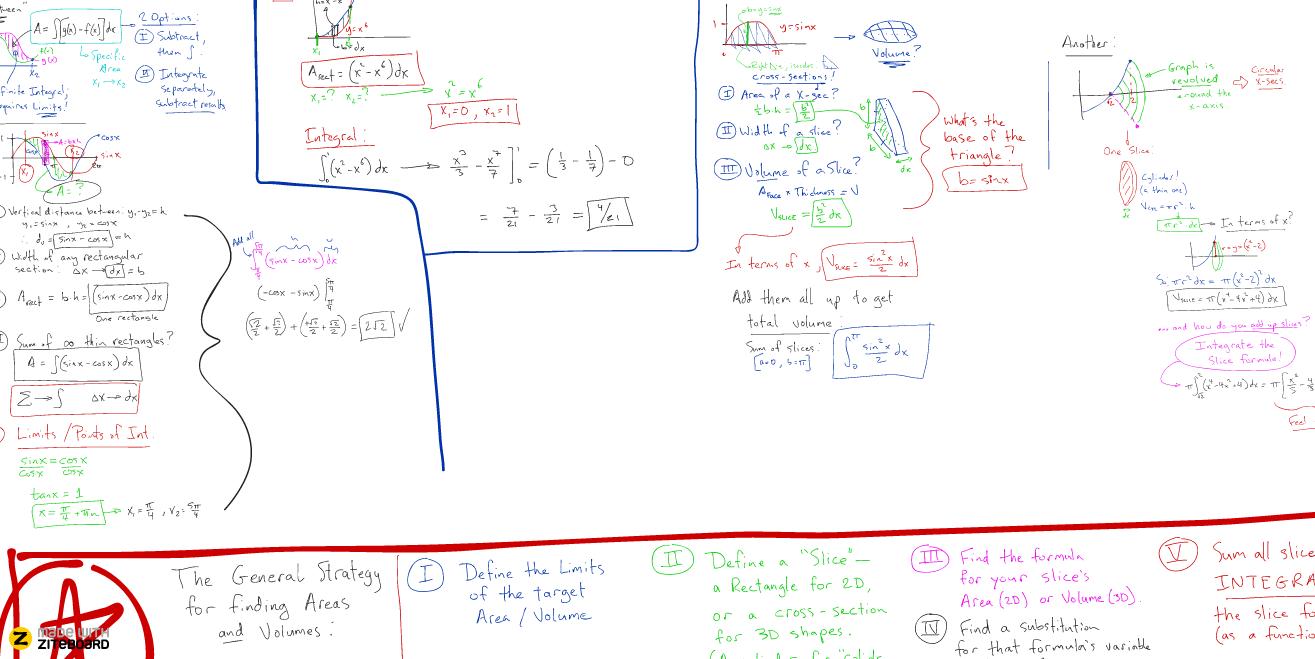 A = ∫[g(x) - f(x)] dx
Specific
Area
x₁ → x₂
f(x)
g(x)
x₂
2 Options:
I Subtract,
then ∫
II Integrate
separately,
subtract results
Limits!
sinx
cosx
A = ?
Vertical distance between: y₁-y₂ = h
y₁ = sinx, y₂ = cosx
∴ dᵥ = sinx - cosx = h
Width of any rectangular
section: Δx → dx = b
A_rect = b·h = (sinx - cosx) dx
One rectangle
Sum of ∞ thin rectangles?
A = ∫(sinx - cosx) dx
Σ → ∫ Δx → dx
Limits / Points of Int.
sinx/cosx = cosx/cosx
tanx = 1
x = π/4 + πn → x₁ = π/4, x₂ = 5π/4
Add all
∫ (sinx - cosx) dx
(-cosx - sinx)
= 2√2 ✓
y = x⁶
dx
A_rect = (x² - x⁶) dx
x₁ = ? x₂ = ?
x² = x⁶
x₁ = 0, x₂ = 1
Integral:
∫₀¹ (x² - x⁶) dx → x³/3 - x⁷/7 ]₀¹ = (1/3 - 1/7) - 0
= 7/21 - 3/21 = 4/21
b = y = sinx
y = sinx
1
π
Volume?
cross-sections!
I Area of a x-sec?
½ b·h = b²/2
II Width of a slice?
Δx → dx
III Volume of a Slice?
A_Face × Thickness = V
V_SLICE = b²/2 dx
b
b
dx
What's the
base of the
triangle?
b = sinx
In terms of x, V_SLICE = sin²x/2 dx
Add them all up to get
total volume:
Sum of slices:
[a=0, b=π]
∫₀^π sin²x/2 dx
Another:
Graph is
revolved
around the
x-axis
Circular
x-secs.
√2
2
One Slice:
Cylinder!
(a thin one)
V_cyl = πr²·h
πr² dx
In terms of x?
r = y = (x²-2)
So πr² dx = π(x²-2)² dx
V_SLICE = π(x⁴-4x²+4) dx
...and how do you add up slices?
Integrate the
Slice formula!
π∫(x⁴-4x²+4) dx = π[x⁵/5 - 4
Feel
The General Strategy
for finding Areas
and Volumes:
I Define the Limits
of the target
Area / Volume
II Define a "Slice" —
a Rectangle for 2D,
or a cross-section
for 3D shapes.
III Find the formula
for your slice's
Area (2D) or Volume (3D).
IV Find a substitution
for that formula's variable
V Sum all slice
INTEGRA
the slice fo
(as a functio
made with
ZITEBOARD